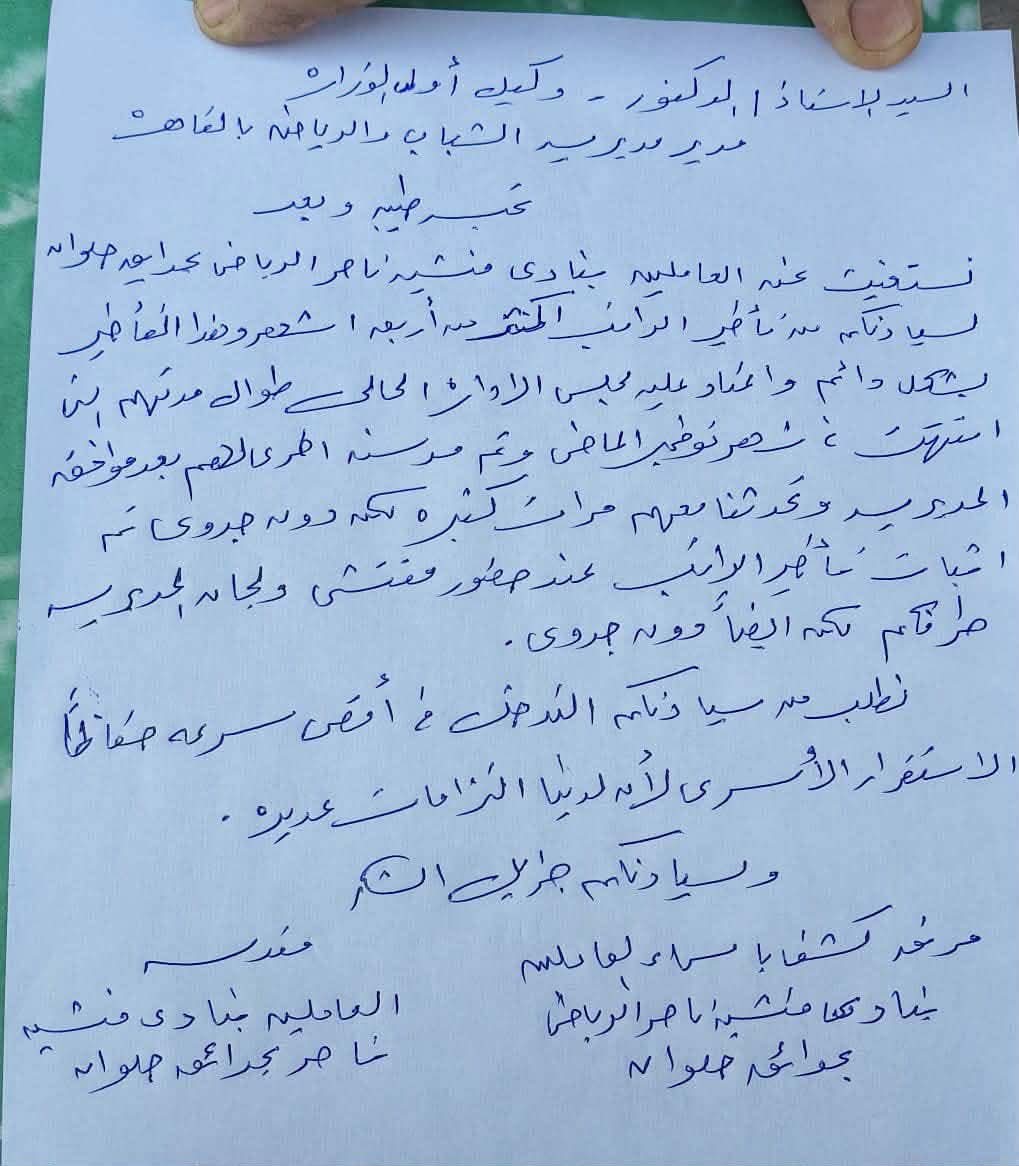 السيد الاستاذ / الدكتور - وكيل أول الوزارة
مدير مديرية الشباب والرياضة بالقاهرة
تحية طيبة وبعد
نستغيث نحن العاملين بنادى منشية ناصر الرياضى بحدايق حلوان
لسيادتكم من تأخير الراتب أكثر من أربعة اشهر وهذا التأخير
بشكل دائم واعتاد عليه مجلس الادارة الحالى طوال مدتهم التى
انتهت فى شهر نوفمبر الماضى وتم مد سنة اخرى لهم بعد موافقة
المديرية وتحدثنا معهم مرات كثيرة لكن دون جدوى تم
اثبات تأخير الراتب عند حضور مفتشى ولجان المديرية
طرفكم لكن ايضاً دون جدوى .
نطلب من سيادتكم التدخل فى أقصى سرعة حفاظاً
الاستقرار الأسرى لأن لدينا التزامات عديدة .
ولسيادتكم جزيل الشكر
مرفق كشف باسماء العاملين
بنادى منشية ناصر الرياضى
بحدائق حلوان
مقدمه
العاملين بنادى منشية
ناصر بحدائق حلوان